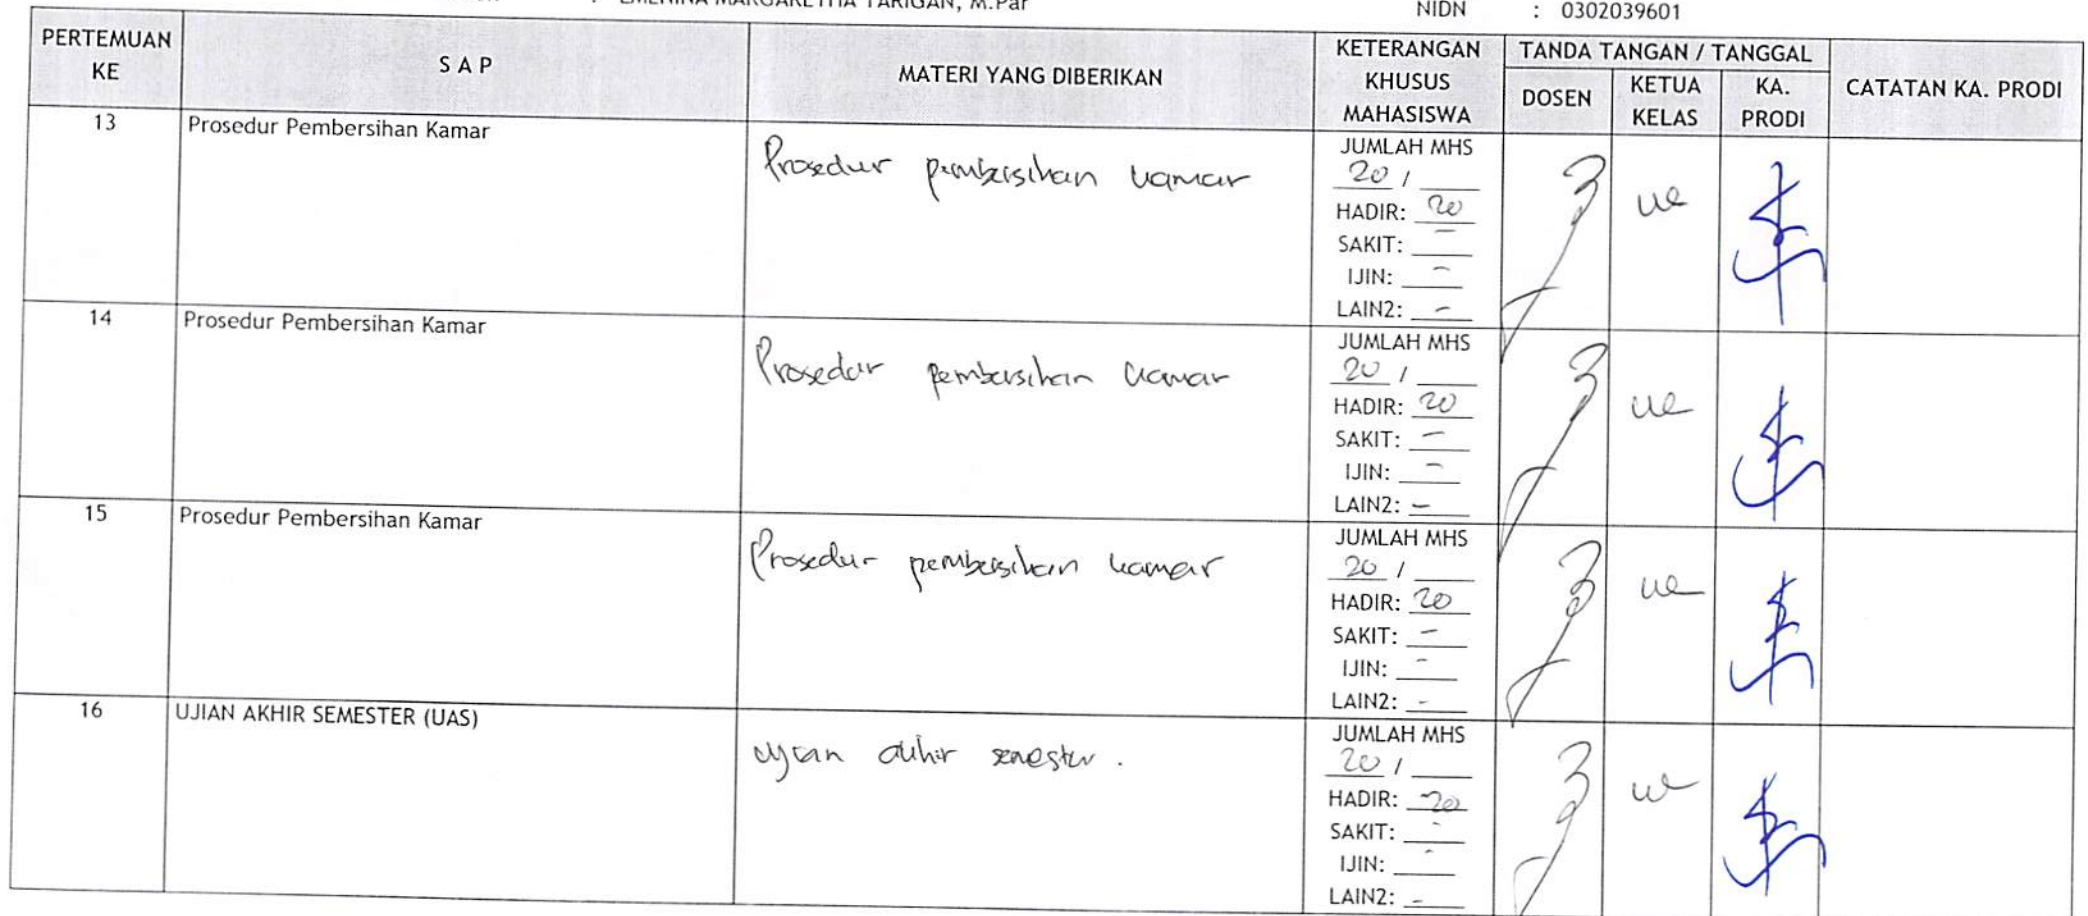 : EMENINA MARGARETHA TARIGAN, M.Par
NIDN : 0302039601
PERTEMUAN KE
S A P
MATERI YANG DIBERIKAN
KETERANGAN KHUSUS MAHASISWA
TANDA TANGAN / TANGGAL
DOSEN
KETUA KELAS
KA. PRODI
CATATAN KA. PRODI
13
Prosedur Pembersihan Kamar
Prosedur pembersihan kamar
JUMLAH MHS
20 /
HADIR: 20
SAKIT: -
IJIN: -
LAIN2: -
14
Prosedur Pembersihan Kamar
Prosedur pembersihan kamar
JUMLAH MHS
20 /
HADIR: 20
SAKIT: -
IJIN: -
LAIN2: -
15
Prosedur Pembersihan Kamar
Prosedur pembersihan kamar
JUMLAH MHS
20 /
HADIR: 20
SAKIT: -
IJIN: -
LAIN2: -
16
UJIAN AKHIR SEMESTER (UAS)
ujian akhir semester.
JUMLAH MHS
20 /
HADIR: 20
SAKIT: -
IJIN: -
LAIN2: -